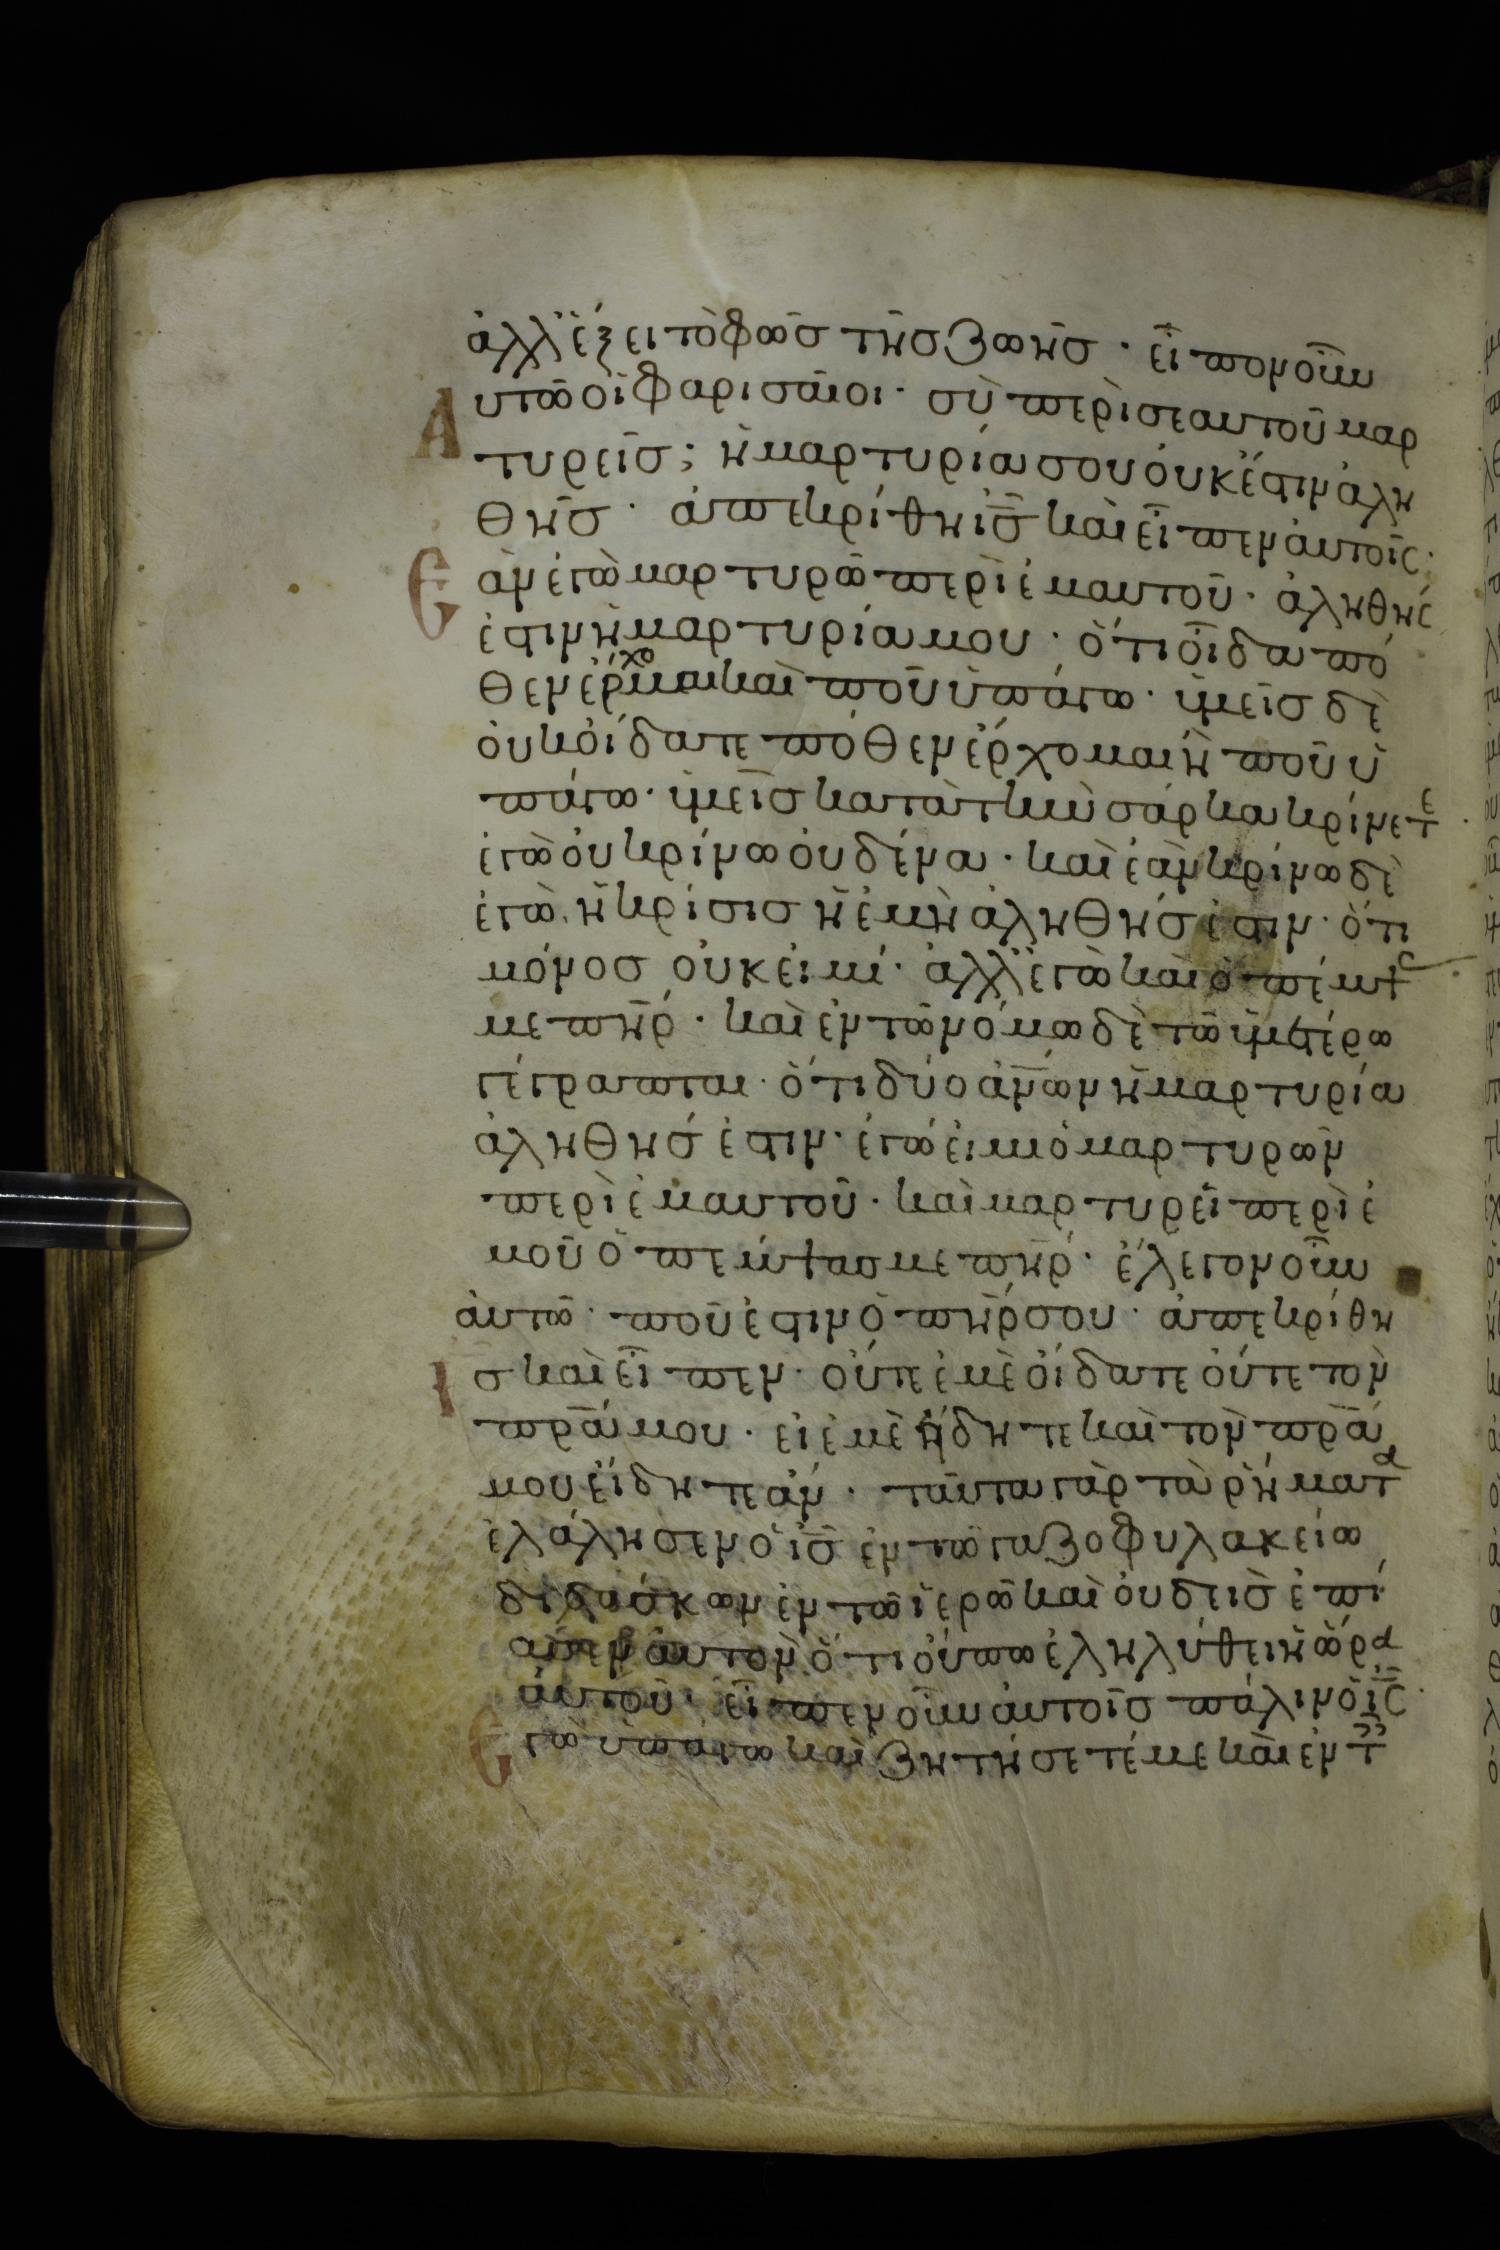 ἀλλ' ἕξει τὸ φῶσ τῆσ ζωῆσ · εἶπον οὖν
Αυτῶ οἱ φαρισαῖοι · σὺ περὶ σεαυτοῦ μαρ
τυρεῖσ; ἡ μαρτυρία σου ὀυκ ἔστιν ἀλη
θῆσ · ἀπεκρίθη ισ̅ καὶ εἶπεν ἀυτοῖσ ·
Εὰν ἐγὼ μαρτυρῶ περὶ ἐμαυτοῦ · ἀληθής
ἐστιν ἡ μαρτυρία μου · ὅτι οἶδα πό
θεν ἔρχομαι καὶ ποῦ ὑπάγω · ὑμεῖσ δὲ
ὀυκ ὀίδατε πόθεν ἔρχομαι ἢ ποῦ ὑ
πάγω · ὑμεῖσ κατὰ τὴν σάρκα κρίνετε
ἐγὼ ὀυ κρίνω ὀυδένα · καὶ ἐὰν κρίνω δὲ
ἐγὼ, ἡ κρίσισ ἡ ἐμὴ ἀληθήσ ἐστιν · ὅτι
μόνοσ ὀυκ ἐιμί · ἀλλ' ἐγὼ καὶ ὁ πέμψασ
με πη̅ρ · καὶ ἐν τῶ νόμω δὲ τῶ ὑμετέρω
γέγραπται · ὅτι δύο ἀν̅ων ἡ μαρτυρία
ἀληθήσ ἐστιν · ἐγώ ἐιμι ὁ μαρτυρῶν
περὶ ἐμαυτοῦ · καὶ μαρτυρεῖ περὶ ἐ
μοῦ ὁ πέμψασ με πη̅ρ · ἔλεγον οὖν
ἀυτῶ · ποῦ ἐστιν ὁ πη̅ρ σου · ἀπεκρίθη
Ισ̅ καὶ εἶπεν · ὀύτε ἐμὲ ὀίδατε ὀύτε τὸν
πρ̅α μου · ἐι ἐμὲ ἤδητε καὶ τὸν πρ̅α
μου ἤιδητε ἄν · ταῦτα γὰρ τὰ ῥήματα
ἐλάλησεν ὁ ισ̅ ἐν τῶ γαζοφυλακείω
διδάσκων ἐν τῶ ἱερῶ καὶ ὀυδεὶσ ἐπί
ασεν ἀυτὸν ὅτι ὀύπω ἐληλύθει ἡ ὥρα
ἀυτοῦ · εἶπεν οὖν ἀυτοῖσ πάλιν ὁ ισ̅ ·
Εγὼ ὑπάγω καὶ ζητήσετέ με καὶ ἐν τ